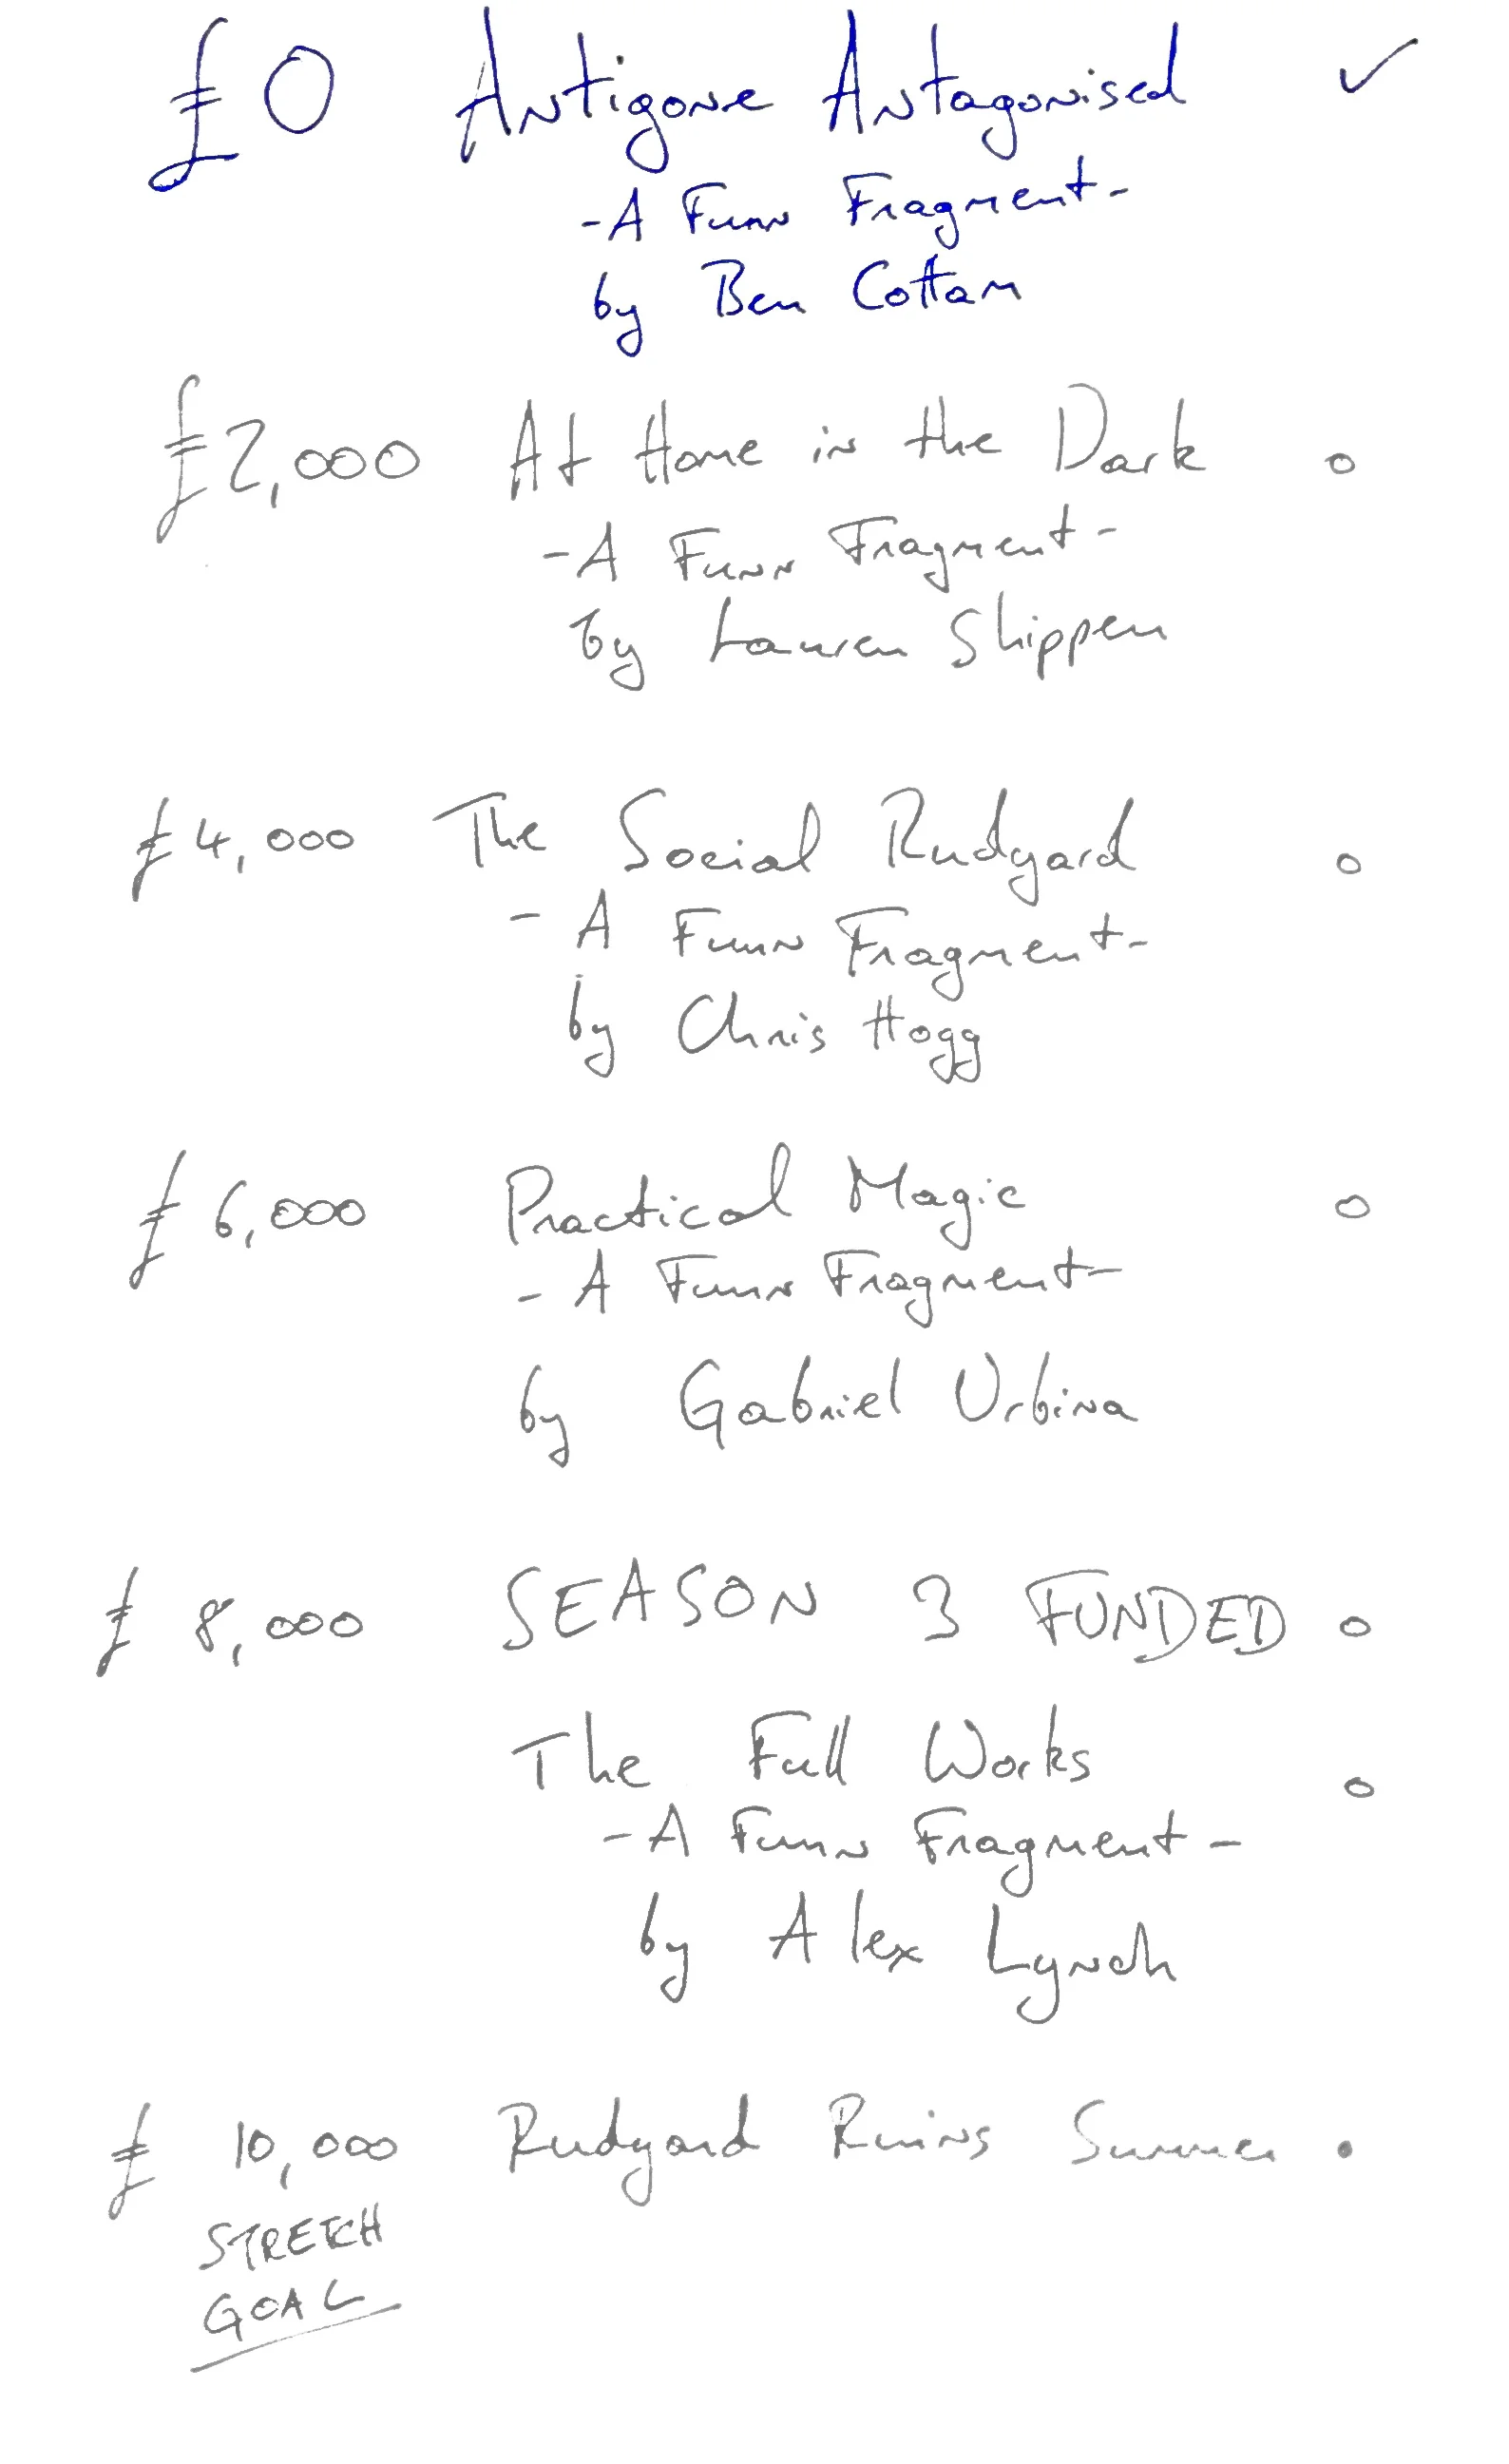 £0 Antigone Antagonised ✓
-A Funn Fragment-
by Ben Cottam
£2,000 At Home in the Dark
-A Funn Fragment-
by Lauren Shippen
£4,000 The Social Rudyard
- A Funn Fragment-
by Chris Hogg
£6,000 Practical Magic
- A Funn Fragment-
by Gabriel Urbina
£8,000 SEASON 3 FUNDED
The Full Works
-A Funn Fragment-
by Alex Lynch
£10,000 Rudyard Ruins Summer
STRETCH
GOAL